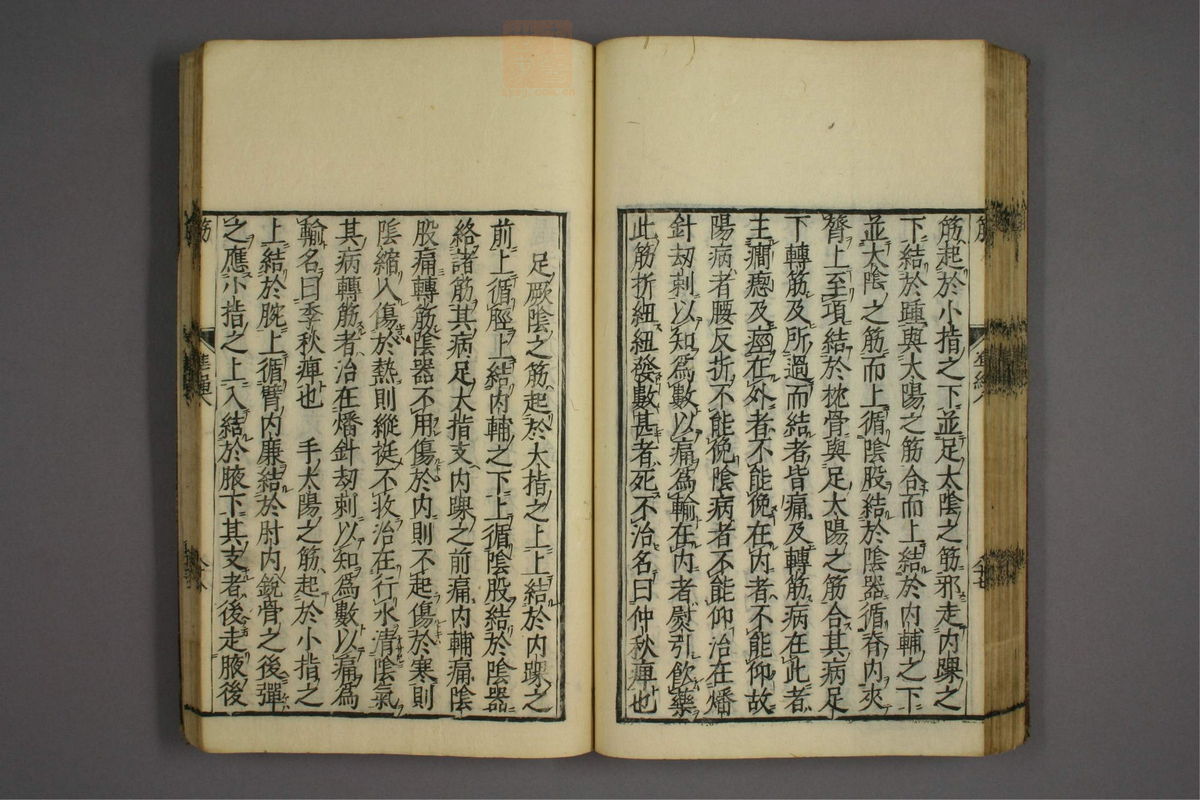 筋起於小指之下並足太陰之筋邪走内踝之
下結於踵與太陽之筋合而上結於内輔之下
並太陰之筋而上循陰股結於陰器循脊内夾
膂上至項結於枕骨與足太陽之筋合其病足
下轉筋及所過而結者皆痛及轉筋病在此者
主癇瘛及痙在外者不能俛在内者不能仰故
陽病者腰反折不能俛陰病者不能仰治在燔
針劫刺以知為數以痛為輸在内者熨引飲藥
此筋折紐紐發數甚者死不治名曰仲秋痺也
足厥陰之筋起於大指之上上結於内踝之
前上循脛上結内輔之下上循陰股結於陰器
絡諸筋其病足大指支内踝之前痛内輔痛陰
股痛轉筋陰器不用傷於内則不起傷於寒則
陰縮入傷於熱則縱挺不收治在行水清陰氣
其病轉筋者治在燔針劫刺以知為數以痛為
輸名曰季秋痺也　手太陽之筋起於小指之
上結於腕上循臂内廉結於肘内銳骨之後彈
之應小指之上入結於腋下其支者後走腋後
筋
筋